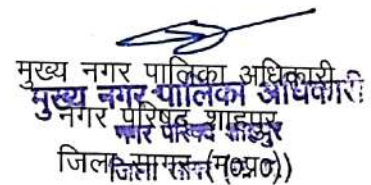 मुख्य नगर पालिका अधिकारी
मुख्य नगर पालिका अधिकारी
नगर परिषद शाहपुर
नगर परिषद शाहपुर
जिला सागर (म०प्र०)
जिला सागर (म०प्र०)